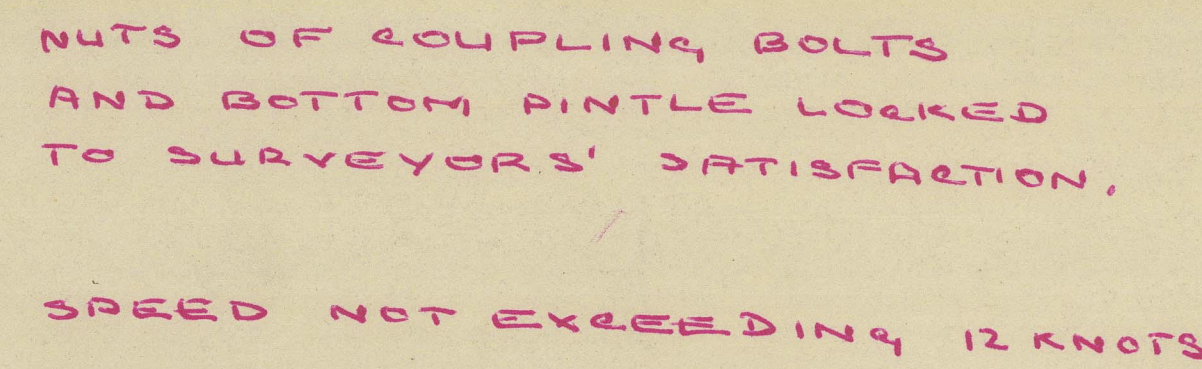 NUTS OF COUPLING BOLTS
AND BOTTOM PINTLE LOCKED
TO SURVEYORS' SATISFACTION.
SPEED NOT EXCEEDING 12 KNOTS